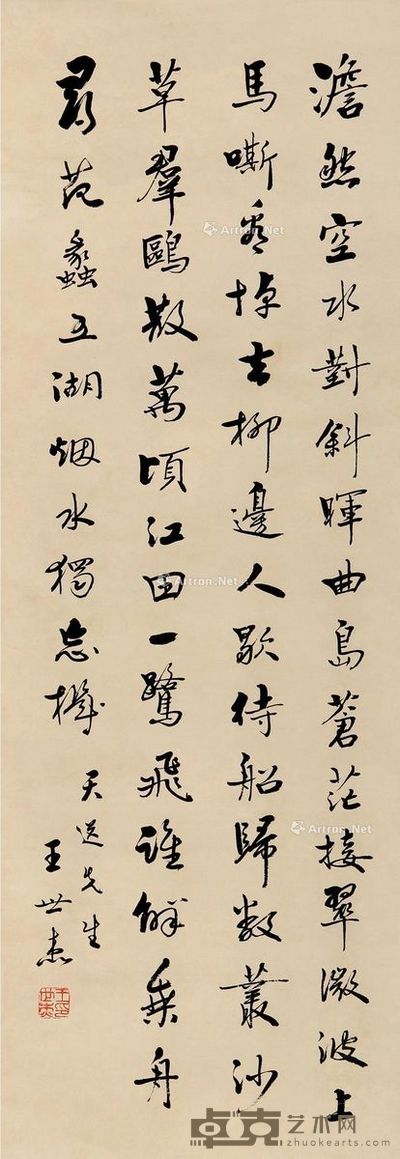 澹然空水對斜暉曲島蒼茫接翠微波上
馬嘶看棹去柳邊人歇待船歸數叢沙
草羣鷗散萬頃江田一鷺飛誰解乘舟
尋范蠡五湖烟水獨忘機
天送先生
王世杰
Artron.Net
Artron.Net
Artron.Net
卓克艺术网
zhuokearts.com